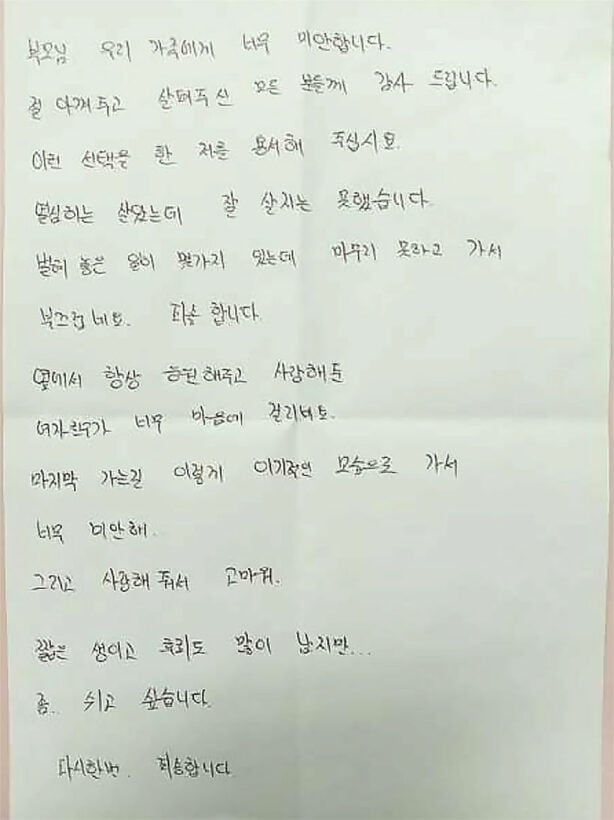 부모님 우리 가족에게 너무 미안합니다.
절 아껴주고 살펴주신 모든 분들께 감사 드립니다.
이런 선택을 한 저를 용서해 주십시요.
열심히는 살았는데 잘 살지는 못했습니다.
벌려 놓은 일이 몇가지 있는데 마무리 못하고 가서
부끄럽네요. 죄송 합니다.
옆에서 항상 응원해주고 사랑해준
여자친구가 너무 마음에 걸리네요.
마지막 가는길 이렇게 이기적인 모습으로 가서
너무 미안해.
그리고 사랑해 줘서 고마워.
짧은 생이고 후회도 많이 남지만...
좀.. 쉬고 싶습니다.
다시한번. 죄송합니다.